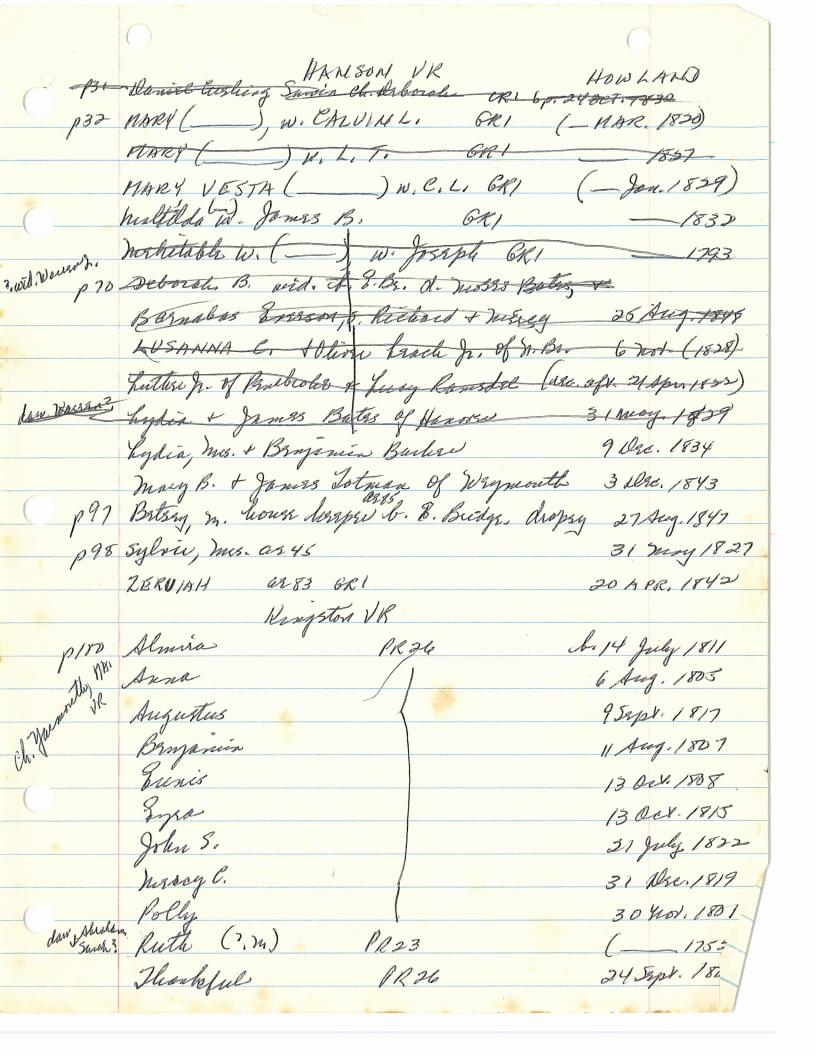 HANSON VR HOWLAND
p31 Daniel Cushing ch. Deborah CR1 bp. 24 OCT. 1832
p32 MARY (______), w. CALVIN L. GR1 (— MAR. 1820)
MARY (______) w. L. T. GR1 —— 1827
MARY VESTA (______) w. C. L. GR1 (— Jan. 1829)
Matilda (—) w. James B. GR1 —— 1832
Mehitable W. (——) w. Joseph GR1 —— 1793
?. wid. Warren
p70 Deborah B. wid. of E. Br. d. Moses Bates &
Barnabas Everson, s. Richard & Mercy 25 Aug. 1845
LUSANNA C. & Oliver Leach Jr. of N. Br. 6 Nov. (1828)
Luther Jr. of Pembroke & Lucy Ramsdel (dec. aft. 21 Apr. 1822)
daw. Warren? Lydia & James Bates of Hanover 31 May. 1829
Lydia, Mrs. & Benjamin Barker 9 Dec. 1834
Mary B. & James Totman of Weymouth 3 Dec. 1843
ae 85
p97 Betsey, m. house keeper b. E. Bridge. dropsy 27 Aug. 1847
p98 Sylvia, Mrs. ae 45 31 May 1827
ZERUIAH ae 83 GR1 20 APR. 1842
Kingston VR
p100 Almira PR26 b. 14 July 1811
ch. Yarmouth, VR
Anna 6 Aug. 1805
Augustus 9 Sept. 1817
Benjamin 11 Aug. 1807
Eunis 13 Oct. 1808
Ezra 13 Oct. 1815
John S. 21 July 1822
Mercy C. 31 Dec. 1819
Polly 30 Nov. 1801
daw Abraham & Sarah?
Ruth (?.m) PR23 (—— 1755
Thankful PR26 24 Sept. 18